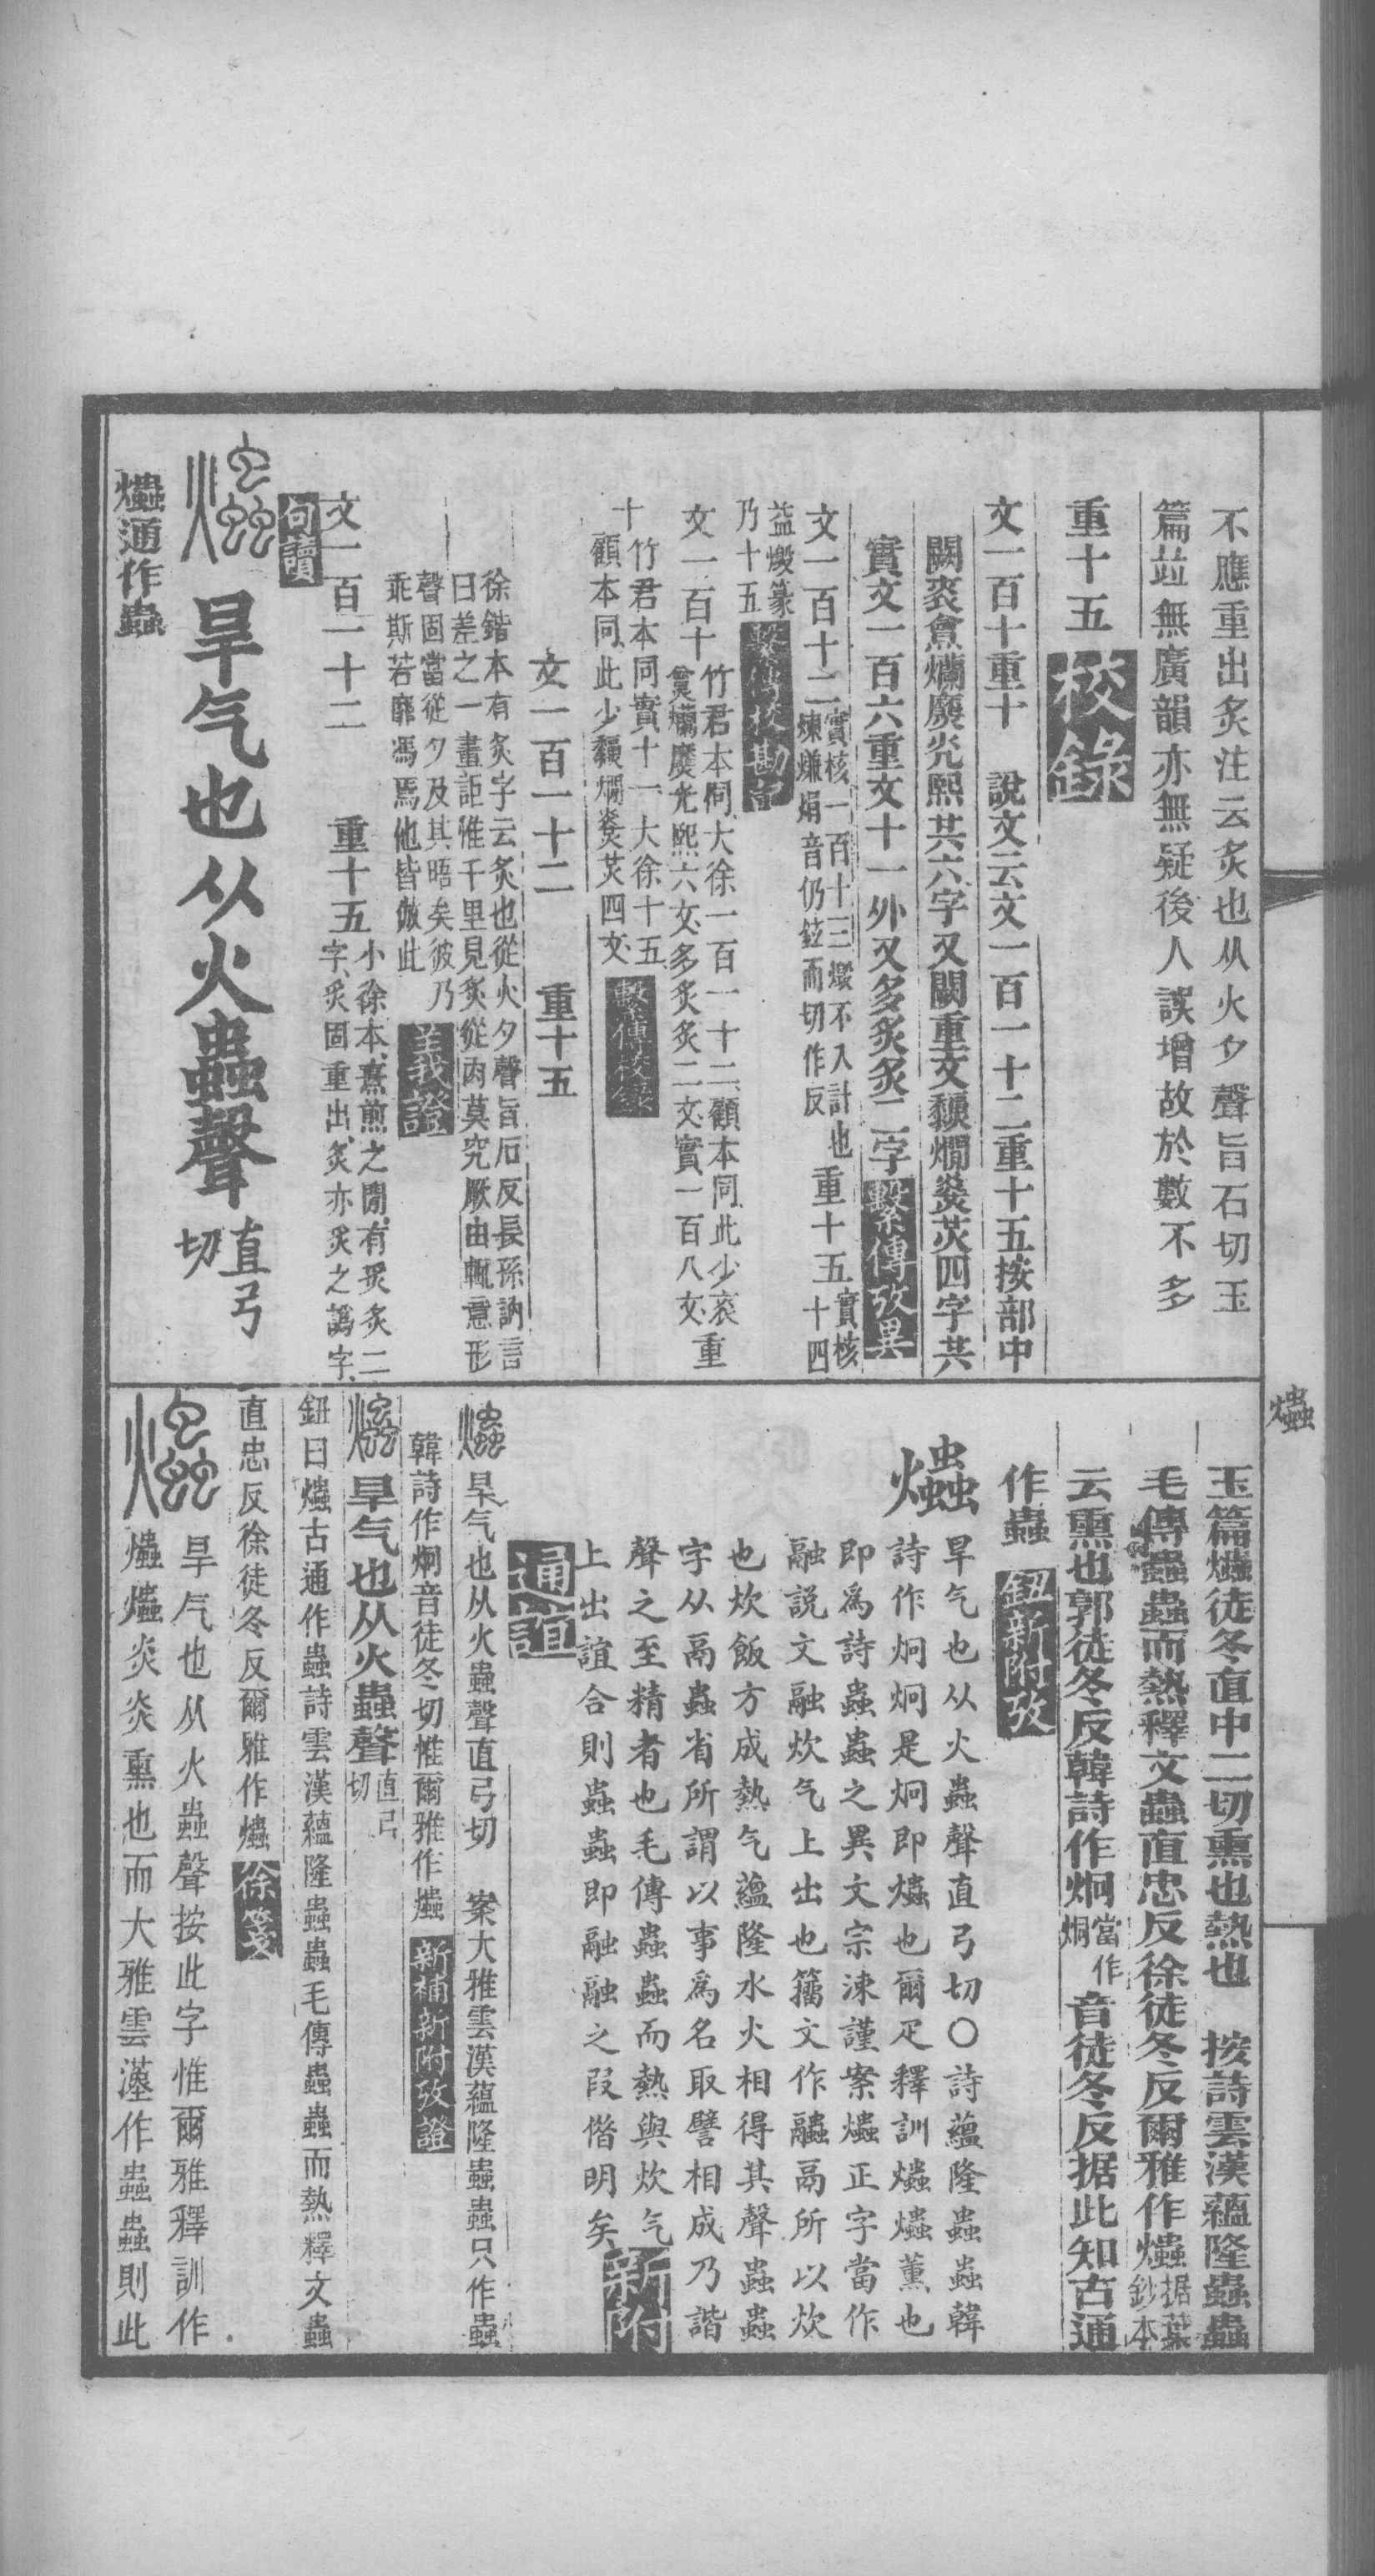 不應重出炙注云炙也从火夕聲旨石切玉
篇並無廣韻亦無疑後人誤增故於數不多
重十五 校錄
文一百十重十 說文云文一百一十二重十五按部中
闕裘㑹爤㷉光熙共六字又闕重文䫶燗㷋灻四字共
實文一百六重文十一外又多炙炙二字 繫傳攷異
文一百十二 實核一百十三燬不入計也
煣熑焆音仍鉉而切作反 重十五 實核十四
益燬篆
乃十五 繫傳校勘記
文一百十 竹君本同大徐一百一十二顧本同此少裘
㑹爤㷉光熙六文多炙炙二文實一百八文 重
十 竹君本同實十一大徐十五
顧本同此少䫶燗㷋灻四文 繫傳校錄
文一百一十二 重十五
徐鍇本有炙字云炙也從火夕聲旨石反長孫訥言
曰差之一畫詎惟千里見炙從肉莫究厥由輒意形
聲固當從夕及其晤矣彼乃
乖斯若靡馮焉他皆倣此 義證
文一百一十二 重十五 小徐本熹煎之閒有炙炙二
字炙固重出炙亦炙之譌字
句讀
爞 旱气也从火蟲聲 直弓切
爞通作蟲
爞
玉篇爞徒冬直中二切熏也熱也 按詩雲漢蘊隆蟲蟲
毛傳蟲蟲而熱釋文蟲直忠反徐徒冬反爾雅作爞 据葉鈔本
云熏也郭徒冬反韓詩作烔 當作烔 音徒冬反据此知古通
作蟲 鈕新附攷
爞 旱气也从火蟲聲直弓切〇詩蘊隆蟲蟲韓
詩作烔烔是烔即爞也爾疋釋訓爞爞薰也
即爲詩蟲蟲之異文宗涑謹案爞正字當作
融說文融炊气上出也籒文作䖇鬲所以炊
也炊飯方成熱气蘊隆水火相得其聲蟲蟲
字从鬲蟲省所謂以事爲名取譬相成乃諧
聲之至精者也毛傳蟲蟲而熱與炊气
上出誼合則蟲蟲即融融之叚偺明矣 新附
通誼
爞 旱气也从火蟲聲直弓切 案大雅雲漢蘊隆蟲蟲只作蟲
韓詩作烔音徒冬切惟爾雅作爞 新補新附攷證
爞 旱气也从火蟲聲 直弓切
鈕曰爞古通作蟲詩雲漢蘊隆蟲蟲毛傳蟲蟲而熱釋文蟲
直忠反徐徒冬反爾雅作爞 徐箋
爞 旱气也从火蟲聲按此字惟爾雅釋訓作
爞爞炎炎熏也而大雅雲漢作蟲蟲則此